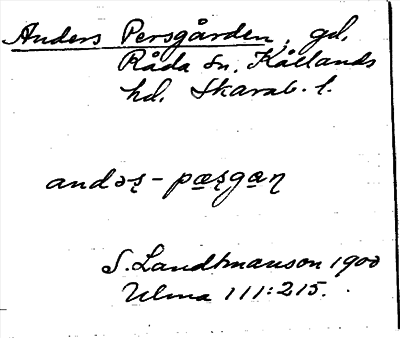 Anders Persgården, gd.
Råda sn. Kållands
hd. Skarab. l.
andəʂ-pæʂgaɳ
S. Landtmanson 1900
Ulma 111:215.